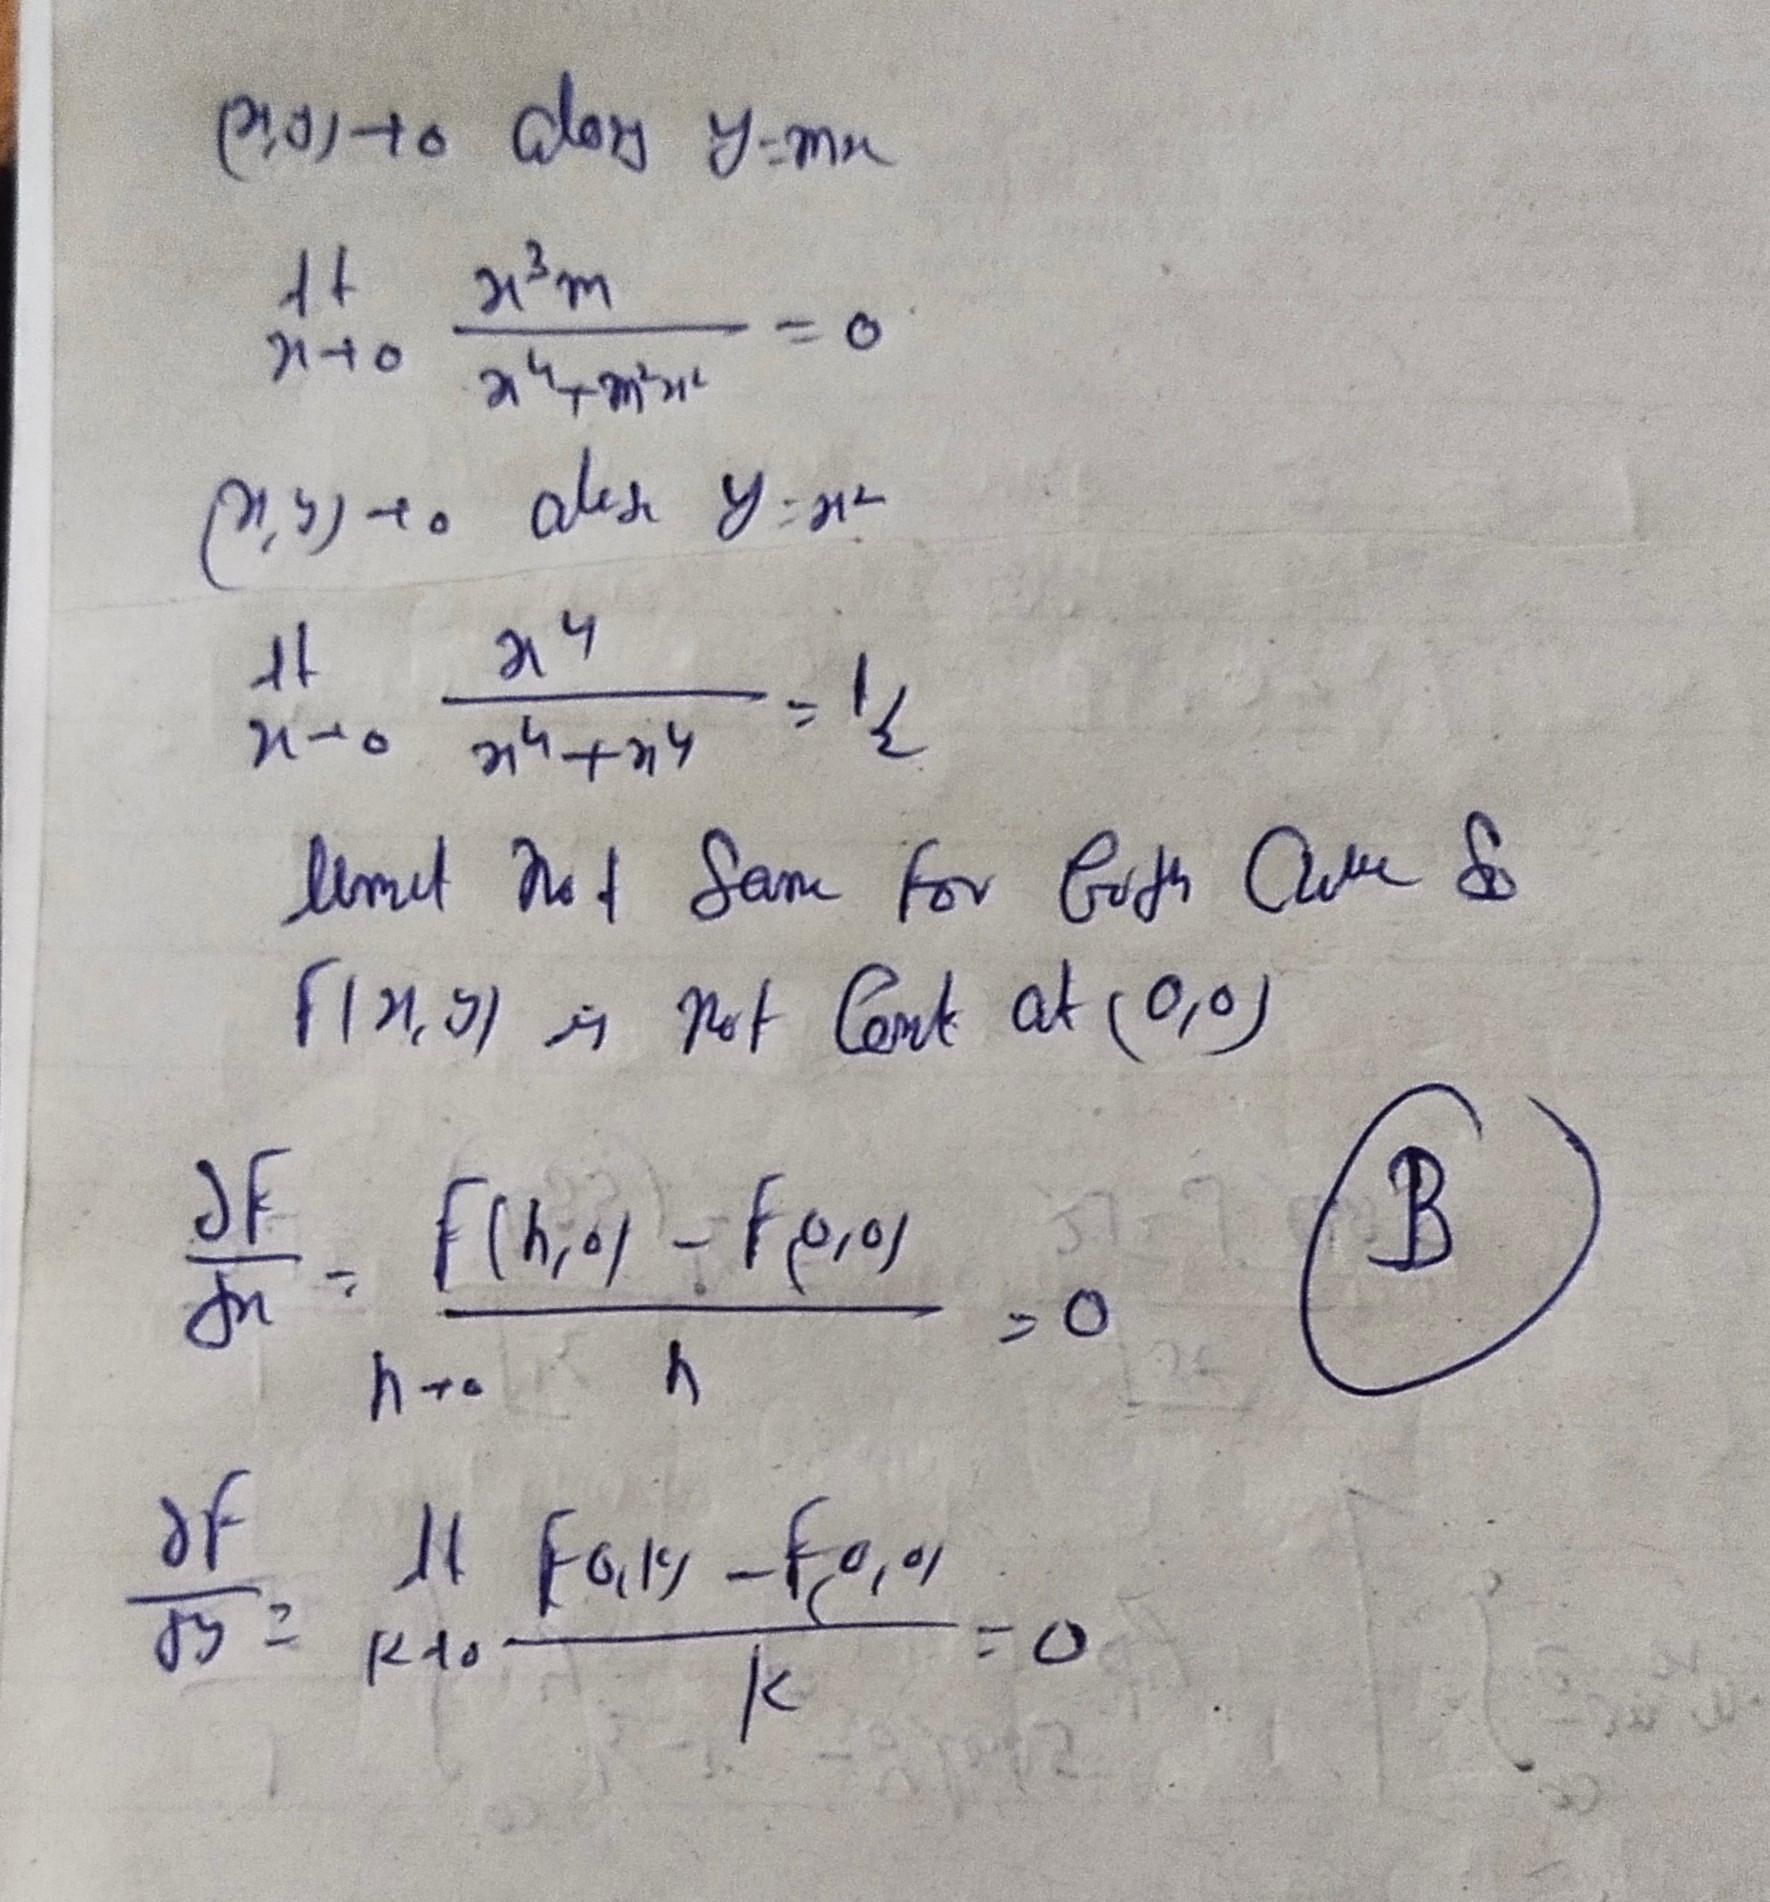 (x,y)→0 along y=mx
lt x→0 x³m / (x⁴+m²x²) = 0
(x,y)→0 along y=x²
lt x→0 x⁴ / (x⁴+x⁴) = 1/2
limit not same for both Curve So
F(x,y) is not Cont at (0,0)
∂F/∂x = h→0 (F(h,0) - F(0,0)) / h = 0
B
∂F/∂y = lt k→0 (F(0,k) - F(0,0)) / k = 0